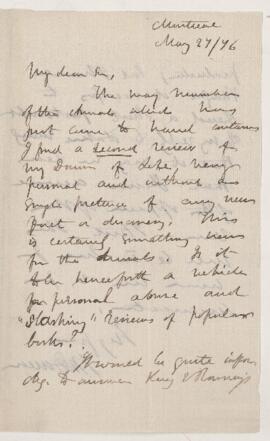 Montreal
May 27/76
My dear Sir,
The May number
of the Annals which has
just come to hand contains
I find a second review of
my Dawn of Life, being
personal and without a
single pretence of any new
fact or discovery. This
is certainly something new
for the Annals. Is it
to be henceforth a vehicle
for personal abuse and
"Slashing" reviews of popular
books?
It would be quite
to answer King & Rowney's